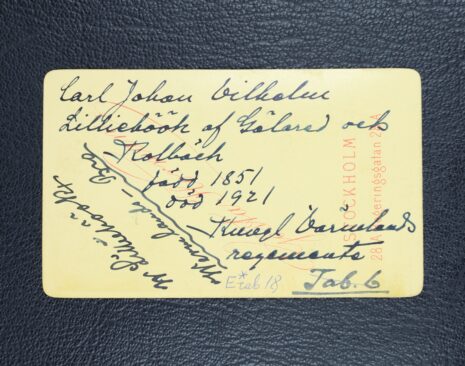 Carl Johan Vilhelm
Lilliehöök af Gälared och
Kolbäck
född 1851
död 1921
Kungl Värmlands
regemente
Tab. 6
Wermlands-Reg
W Lilliehöök
STOCKHOLM
28 A Regeringsgatan 28 A